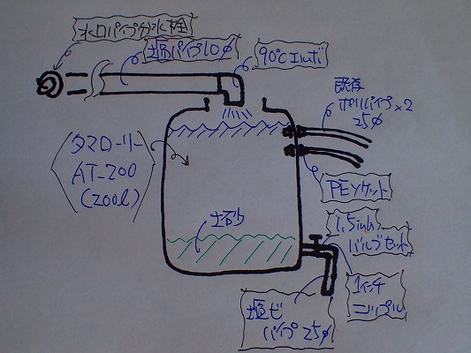 水口パイプ分水栓
塩ビパイプ40φ
90℃エルボ
既存
ポリパイプ×2
25φ
タマローリー
AT-200
(200ℓ)
PEソケット
土砂
1.5inch
バルブセット
1インチ
ニップル
塩ビ
パイプ 25φ